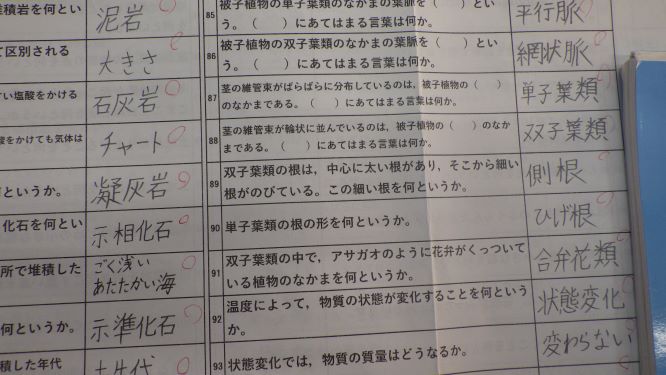 堆積岩を何とい
泥岩
て区別される
大きさ
すい塩酸をかける
石灰岩
酸をかけても気体は
チャート
というか。
凝灰岩
化石を何とい
示相化石
所で堆積した
ごく浅い
あたたかい海
何というか。
示準化石
積した年代
85 被子植物の単子葉類のなかまの葉脈を（　）とい
う。（　）にあてはまる言葉は何か。
平行脈
86 被子植物の双子葉類のなかまの葉脈を（　）とい
う。（　）にあてはまる言葉は何か。
網状脈
87 茎の維管束がばらばらに分布しているのは，被子植物の（　）
のなかまである。（　）にあてはまる言葉は何か。
単子葉類
88 茎の維管束が輪状に並んでいるのは，被子植物の（　）のなか
まである。（　）にあてはまる言葉は何か。
双子葉類
89 双子葉類の根は，中心に太い根があり，そこから細い
根がのびている。この細い根を何というか。
側根
90 単子葉類の根の形を何というか。
ひげ根
91 双子葉類の中で，アサガオのように花弁がくっついて
いる植物のなかまを何というか。
合弁花類
92 温度によって，物質の状態が変化することを何という
か。
状態変化
93 状態変化では，物質の質量はどうなるか。
変わらない